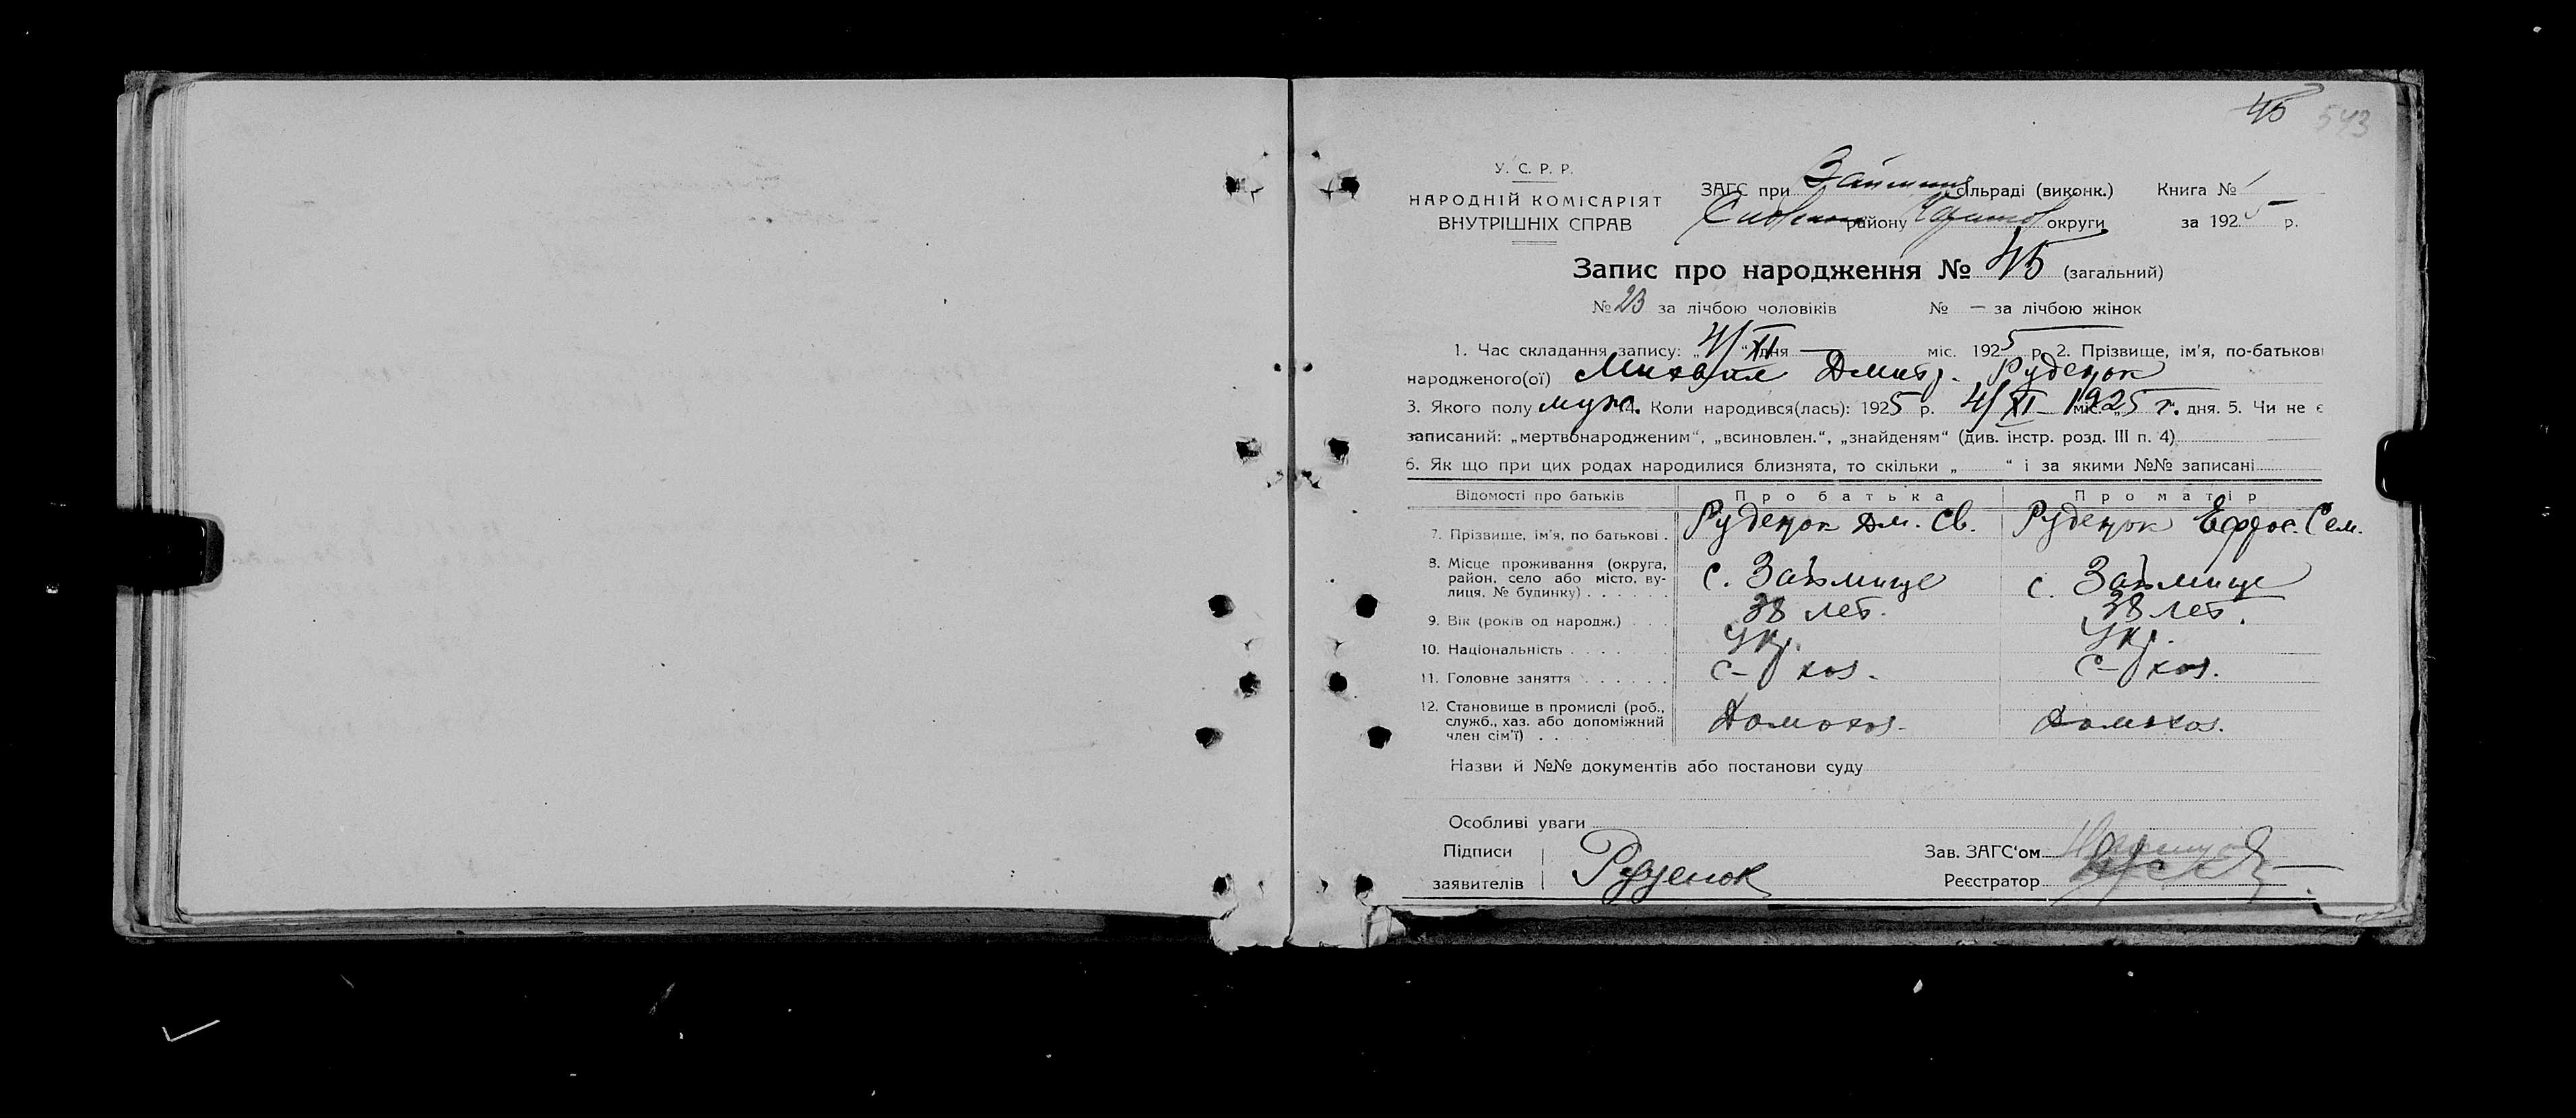 45 543
У. С. Р. Р.
НАРОДНІЙ КОМІСАРІЯТ
ВНУТРІШНІХ СПРАВ
ЗАГС при сільраді (виконк.) Книга № 1
району округи за 1925 р.
Запис про народження № 45 (загальний)
№ 23 за лічбою чоловіків № — за лічбою жінок
1. Час складання запису: „4/XI“ дня — міс. 1925 р. 2. Прізвище, ім'я, по-батькові
народженого(ої) Михаил Дмитр. Руденок
3. Якого полу муж. 4. Коли народився(лась): 1925 р. 4/XI — 1925 г. міс. „ дня. 5. Чи не є
записаний: „мертвонародженим“, „всиновлен.“, „знайденям“ (див. інстр. розд. III п. 4)
6. Як що при цих родах народилися близнята, то скільки „ “ і за якими №№ записані
Відомості про батьків Про батька Про матір
7. Прізвище, ім'я, по батькові . Руденок Дм. Св. Руденок Ефрос. Сем.
8. Місце проживання (округа,
район, село або місто, ву-
лиця, № будинку) . . . . . . с. Займище с. Займище
9. Вік (років од народж.) . . . 38 лет. 38 лет.
10. Національність . . . . . . Укр. Укр.
11. Головне заняття . . . . . . с-хоз. с-хоз.
12. Становище в промислі (роб.,
служб., хаз. або допоміжний
член сім'ї) . . . . Домохоз. Домохоз.
Назви й №№ документів або постанови суду
Особливі уваги
Підписи
заявителів Руденок
Зав. ЗАГС'ом
Реєстратор